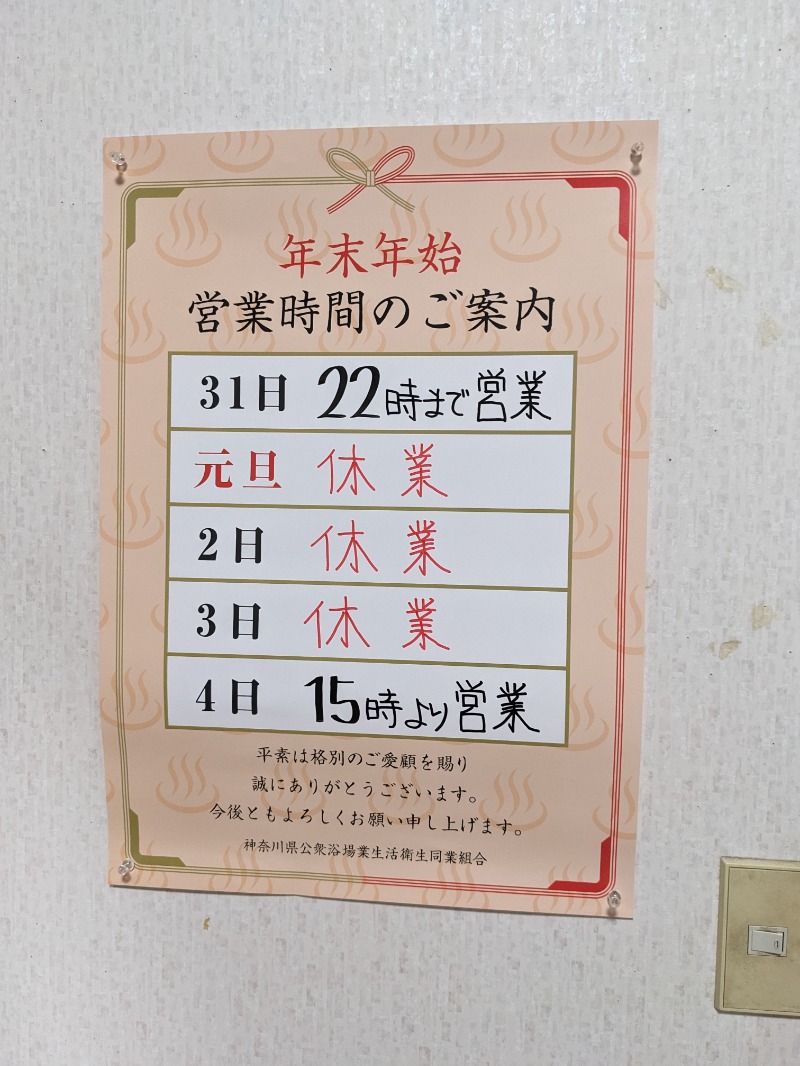 年末年始
営業時間のご案内
31日 22時まで営業
元旦 休業
2日 休業
3日 休業
4日 15時より営業
平素は格別のご愛顧を賜り
誠にありがとうございます。
今後ともよろしくお願い申し上げます。
神奈川県公衆浴場業生活衛生同業組合